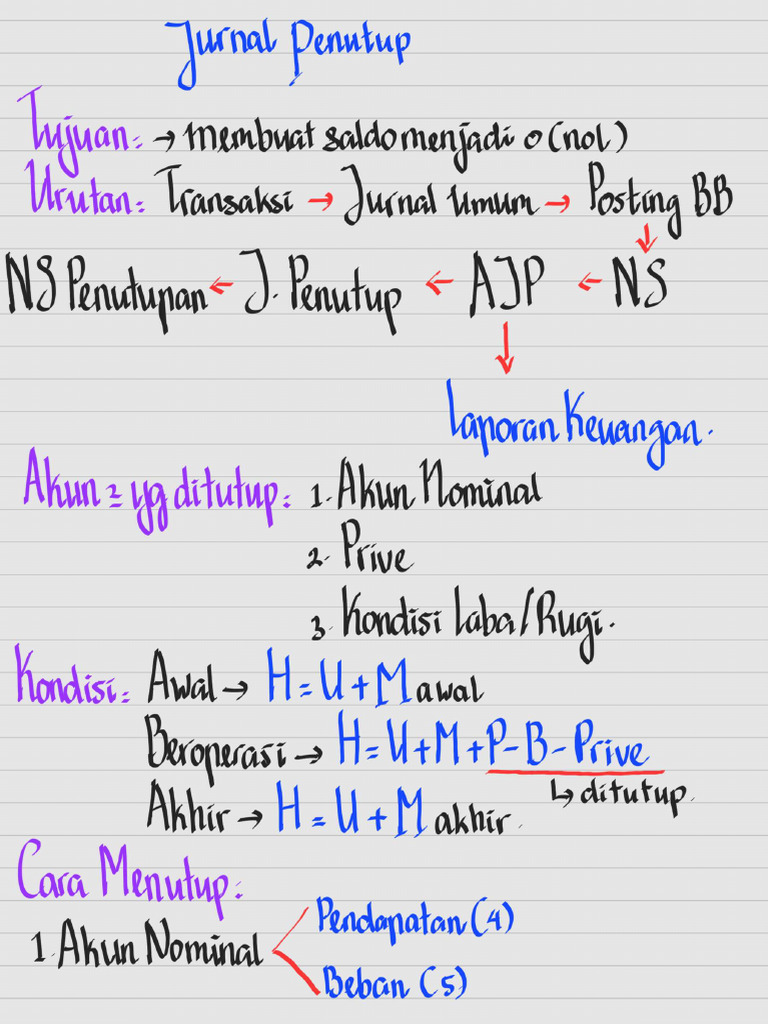 Jurnal Penutup
Tujuan: → membuat saldo menjadi 0 (nol)
Urutan: Transaksi → Jurnal Umum → Posting BB
↓
NS Penutupan ← J. Penutup ← AJP ← NS
↓
Laporan Keuangan.
Akun² yg ditutup: 1. Akun Nominal
2. Prive
3. Kondisi Laba/Rugi.
Kondisi: Awal → H = U + M awal
Beroperasi → H = U + M + P - B - Prive
↳ ditutup.
Akhir → H = U + M akhir.
Cara Menutup:
1. Akun Nominal
Pendapatan (4)
Beban (5)